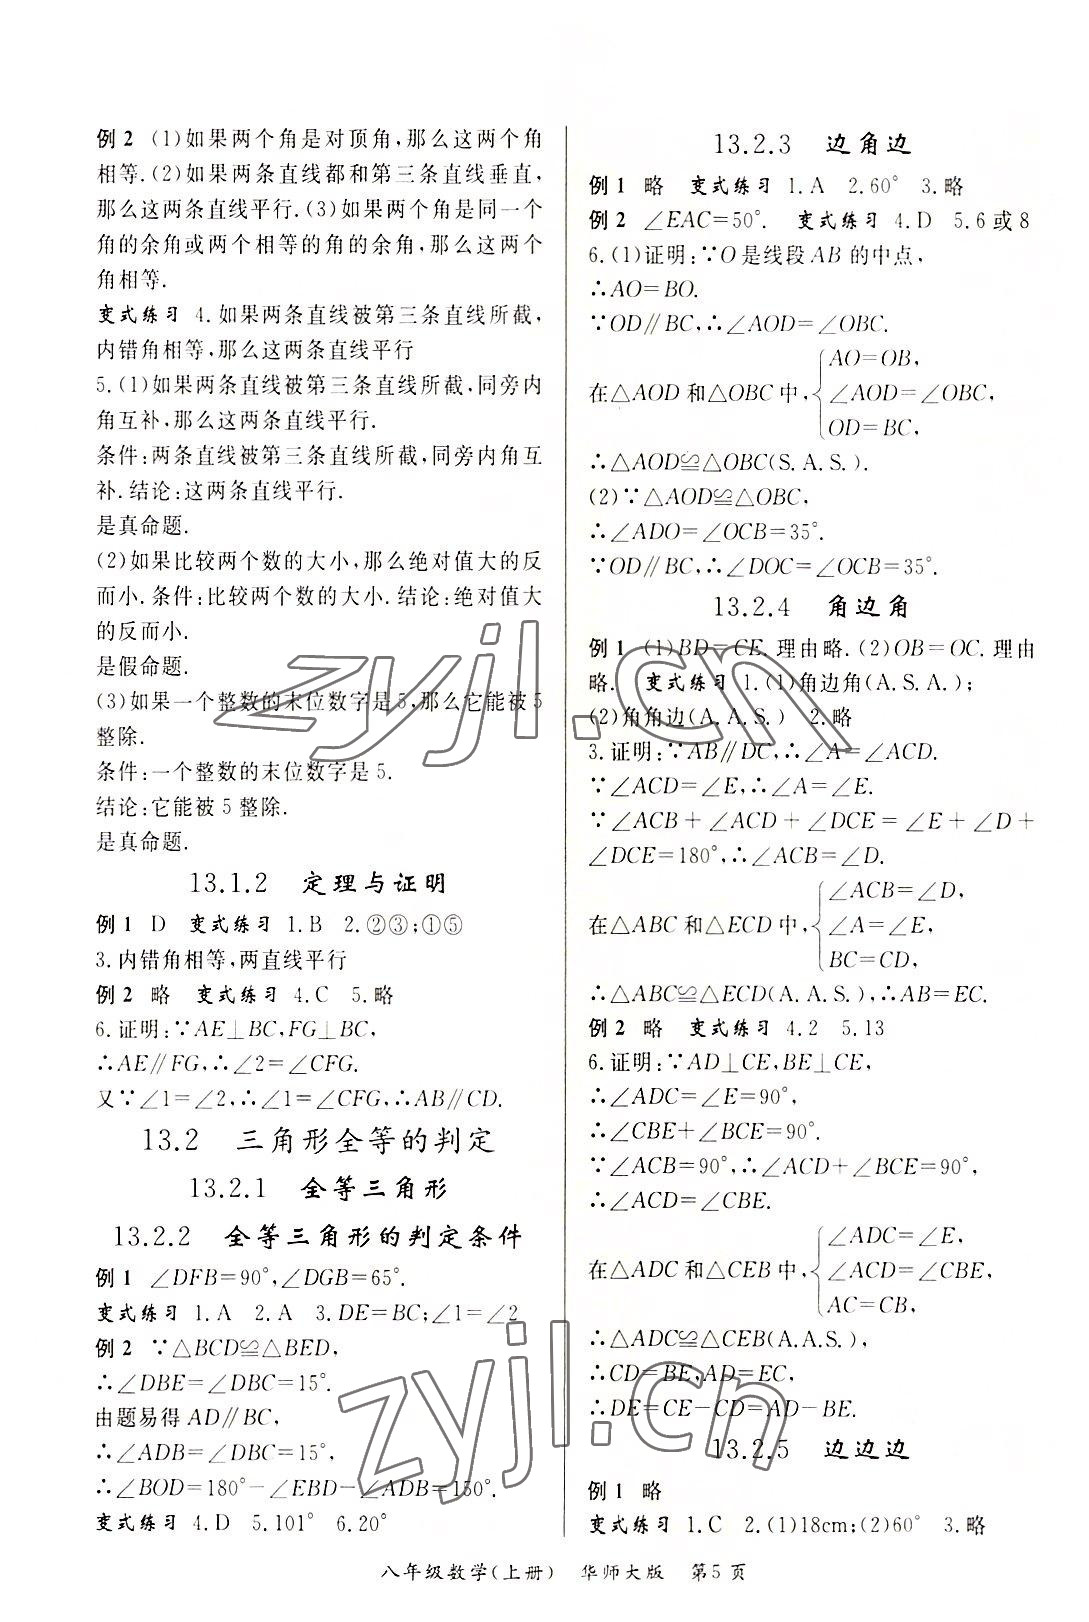 例2 (1)如果两个角是对顶角,那么这两个角
相等.(2)如果两条直线都和第三条直线垂直,
那么这两条直线平行.(3)如果两个角是同一个
角的余角或两个相等的角的余角,那么这两个
角相等.
变式练习 4.如果两条直线被第三条直线所截,
内错角相等,那么这两条直线平行
5.(1)如果两条直线被第三条直线所截,同旁内
角互补,那么这两条直线平行.
条件:两条直线被第三条直线所截,同旁内角互
补.结论:这两条直线平行.
是真命题.
(2)如果比较两个数的大小,那么绝对值大的反
而小.条件:比较两个数的大小.结论:绝对值大
的反而小.
是假命题.
(3)如果一个整数的末位数字是5,那么它能被5
整除.
条件:一个整数的末位数字是5.
结论:它能被5整除.
是真命题.
13.1.2 定理与证明
例1 D 变式练习 1.B 2.②③;①⑤
3.内错角相等,两直线平行
例2 略 变式练习 4.C 5.略
6.证明:∵AE⊥BC,FG⊥BC,
∴AE∥FG,∴∠2=∠CFG.
又∵∠1=∠2,∴∠1=∠CFG,∴AB∥CD.
13.2 三角形全等的判定
13.2.1 全等三角形
13.2.2 全等三角形的判定条件
例1 ∠DFB=90°,∠DGB=65°.
变式练习 1.A 2.A 3.DE=BC;∠1=∠2
例2 ∵△BCD≌△BED,
∴∠DBE=∠DBC=15°.
由题易得AD∥BC,
∴∠ADB=∠DBC=15°,
∴∠BOD=180°-∠EBD-∠ADB=150°.
变式练习 4.D 5.101° 6.20°
13.2.3 边角边
例1 略 变式练习 1.A 2.60° 3.略
例2 ∠EAC=50°. 变式练习 4.D 5.6或8
6.(1)证明:∵O是线段AB的中点,
∴AO=BO.
∵OD∥BC,∴∠AOD=∠OBC.
AO=OB,
在△AOD和△OBC中,{∠AOD=∠OBC,
OD=BC,
∴△AOD≌△OBC(S.A.S.).
(2)∵△AOD≌△OBC,
∴∠ADO=∠OCB=35°.
∵OD∥BC,∴∠DOC=∠OCB=35°.
13.2.4 角边角
例1 (1)BD=CE.理由略.(2)OB=OC.理由
略. 变式练习 1.(1)角边角(A.S.A.);
(2)角角边(A.A.S.) 2.略
3.证明:∵AB∥DC,∴∠A=∠ACD.
∵∠ACD=∠E,∴∠A=∠E.
∵∠ACB+∠ACD+∠DCE=∠E+∠D+
∠DCE=180°,∴∠ACB=∠D.
∠ACB=∠D,
在△ABC和△ECD中,{∠A=∠E,
BC=CD,
∴△ABC≌△ECD(A.A.S.),∴AB=EC.
例2 略 变式练习 4.2 5.13
6.证明:∵AD⊥CE,BE⊥CE,
∴∠ADC=∠E=90°,
∴∠CBE+∠BCE=90°.
∵∠ACB=90°,∴∠ACD+∠BCE=90°,
∴∠ACD=∠CBE.
∠ADC=∠E,
在△ADC和△CEB中,{∠ACD=∠CBE,
AC=CB,
∴△ADC≌△CEB(A.A.S.),
∴CD=BE,AD=EC.
∴DE=CE-CD=AD-BE.
13.2.5 边边边
例1 略
变式练习 1.C 2.(1)18cm;(2)60° 3.略
八年级数学(上册) 华师大版 第5页
zyjl.cn
zyjl.cn